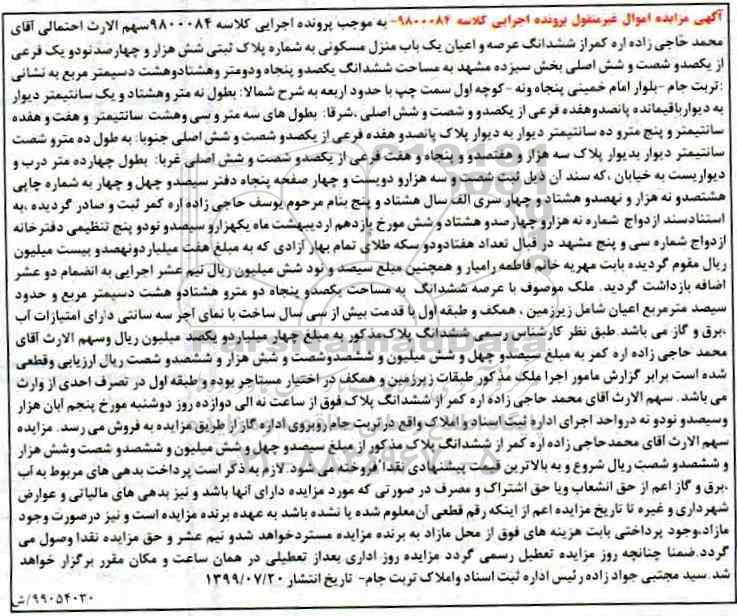 آگهی مزایده اموال غیرمنقول پرونده اجرایی کلاسه ۹۸۰۰۰۸۴- به موجب پرونده اجرایی کلاسه ۹۸۰۰۰۸۴سهم الارث احتمالی آقای
محمد حاجی زاده اره کمراز ششدانگ عرصه و اعیان یک باب منزل مسکونی به شماره پلاک ثبتی شش هزار و چهارصدنودو یک فرعی
از یکصدو شصت و شش اصلی بخش سیزده مشهد به مساحت ششدانگ یکصدو پنجاه ودومتر وهشتادوهشت دسیمتر مربع به نشانی
:تربت جام -بلوار امام خمینی پنجاه ونه -کوچه اول سمت چپ با حدود اربعه به شرح شمالا: بطول نه متر وهشتاد و یک سانتیمتر دیوار
به دیوارباقیمانده پانصدوهفده فرعی از یکصدو و شصت و شش اصلی ،شرقا: بطول های سه متر و سی وهشت سانتیمتر و هفت و هفده
سانتیمتر و پنج مترو ده سانتیمتر دیوار به دیوار پلاک پانصدو هفده فرعی از یکصدو شصت و شش اصلی جنوبا: به طول ده مترو شصت
سانتیمتر دیوار بدیوار پلاک سه هزار و هفتصدو و پنجاه و هفت فرعی از یکصدو شصت و شش اصلی غربا: بطول چهارده متر درب و
دیواریست به خیابان ،که سند آن ذیل ثبت شصت و سه هزارو دویست و چهار صفحه پنجاه دفتر سیصدو چهل و چهار به شماره چاپی
هشتصدو نه هزار و نهصدو هشتاد و چهار سری الف سال هشتاد و پنج بنام مرحوم یوسف حاجی زاده اره کمر ثبت و صادر گردیده ،به
استنادسند ازدواج شماره نه هزارو چهارصدو هشتاد و شش مورخ یازدهم اردیبهشت ماه یکهزارو سیصدو نودو پنج تنظیمی دفترخانه
ازدواج شماره سی و پنج مشهد در قبال تعداد هفتادودو سکه طلای تمام بهار آزادی که به مبلغ هفت میلیاردونهصدو بیست میلیون
ریال مقوم گردیده بابت مهریه خانم فاطمه رامیار و همچنین مبلغ سیصد و نود شش میلیون ریال نیم عشر اجرایی به انضمام دو عشر
اضافه بازداشت گردید. ملک موصوف با عرصه ششدانگ به مساحت یکصدو پنجاه دو مترو هشتادو هشت دسیمتر مربع و حدود
سیصد مترمربع اعیان شامل زیرزمین ، همکف و طبقه اول با قدمت بیش از سی سال ساخت با نمای آجر سه سانتی دارای امتیازات آب
،برق و گاز می باشد.طبق نظر کارشناس رسمی ششدانگ پلاک مذکور به مبلغ چهار میلیاردو یکصد میلیون ریال وسهم الارث آقای
محمد حاجی زاده اره کمر به مبلغ سیصدو چهل و شش میلیون و ششصدوشصت و شش هزار و ششصدو شصت ریال ارزیابی وقطعی
شده است برابر گزارش مامور اجرا ملک مذکور طبقات زیرزمین و همکف در اختیار مستاجر بوده و طبقه اول در تصرف احدی از وارث
می باشد . سهم الارث آقای محمد حاجی زاده اره کمر از ششدانگ پلاک فوق از ساعت نه الی دوازده روز دوشنبه مورخ پنجم آبان هزار
وسیصدو نودو نه درواحد اجرای اداره ثبت اسناد و املاک واقع در تربت جام روبروی اداره گاز از طریق مزایده به فروش می رسد. مزایده
سهم الارث آقای محمدحاجی زاده اره کمر از ششدانگ پلاک مذکور از مبلغ سیصدو چهل و شش میلیون و ششصدو شصت وشش هزار
و ششصدو شصت ریال شروع و به بالاترین قیمت پیشنهادی نقدا فروخته می شود. لازم به ذکر است پرداخت بدهی های مربوط به آب
،برق و گاز اعم از حق انشعاب ویا حق اشتراک و مصرف در صورتی که مورد مزایده دارای آنها باشد و نیز بدهی های مالیاتی و عوارض
شهرداری و غیره تا تاریخ مزایده اعم از اینکه رقم قطعی آن معلوم شده یا نشده باشد به عهده برنده مزایده است و نیز درصورت وجود
مازاد،وجود پرداختی بابت هزینه های فوق از محل مازاد به برنده مزایده مستردخواهد شدو نیم عشر و حق مزایده نقدا وصول می
گردد.ضمنا چنانچه روز مزایده تعطیل رسمی گردد مزایده روز اداری بعداز تعطیلی در همان ساعت و مکان مقرر برگزار خواهد
شد.سید مجتبی جواد زاده رئیس اداره ثبت اسناد واملاک تربت جام- تاریخ انتشار ۱۳۹۹/۰۷/۲۰
۹۹۰۵۴۰۳۰/ش